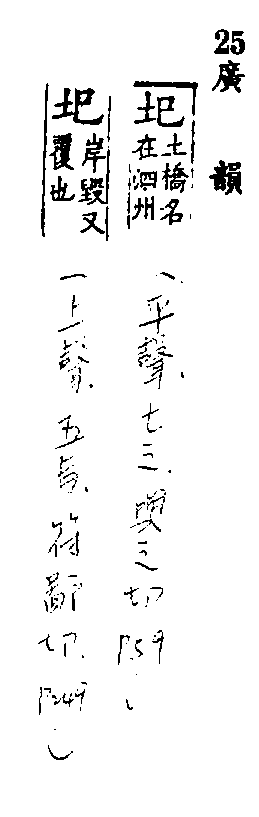 25廣韻
圯土橋名在泗州(平聲.七之.與之切P.59)
圯岸毀又覆也(上聲.五旨.符鄙切P.249)